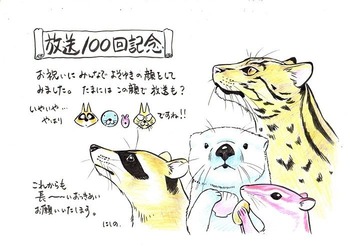 放送100回記念
お祝いに みんなで よそゆきの顔をして
みました。たまには この顔で 放送も？
いやいや…
やはり ですね!!
これからも
長〜〜いおつきあい
お願いいたします。
にしの.